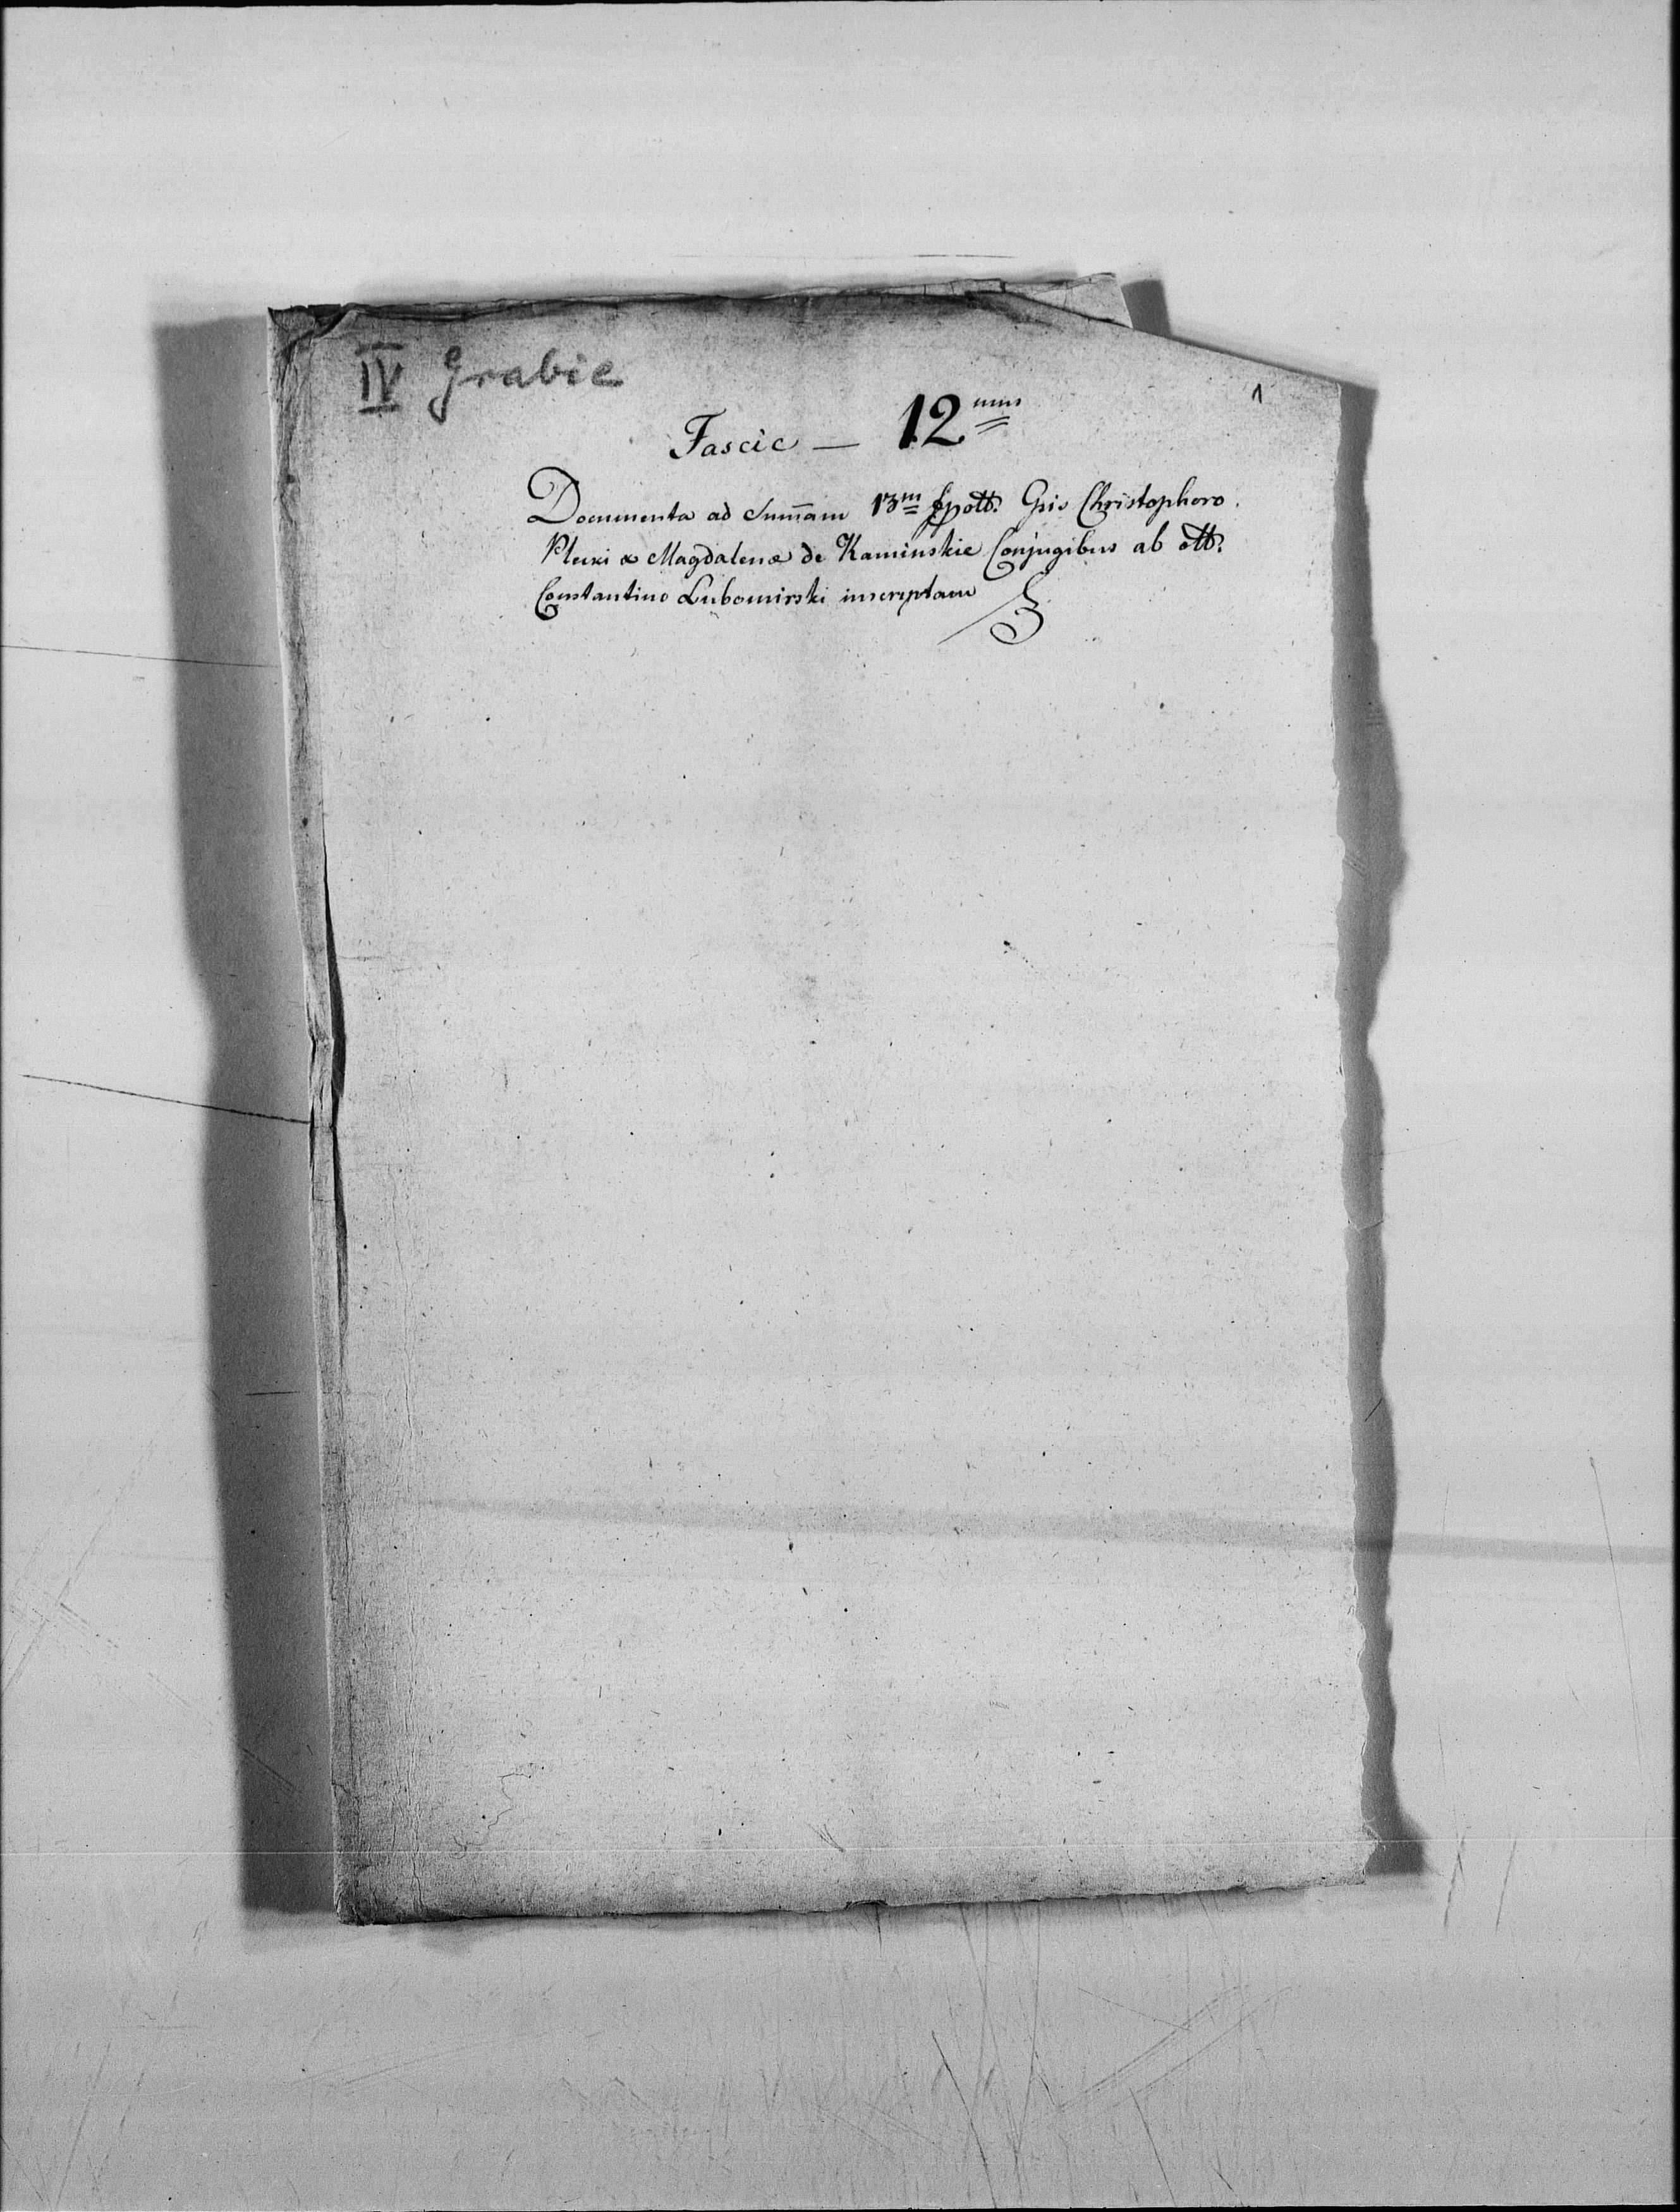 IV Grabie
1
Fascic — 12mus
Documenta ad Summam 13m Gsis Christophoro
& Magdalenæ de Kaminskie Conjugibus ab
Constantino Lubomirski inscriptam